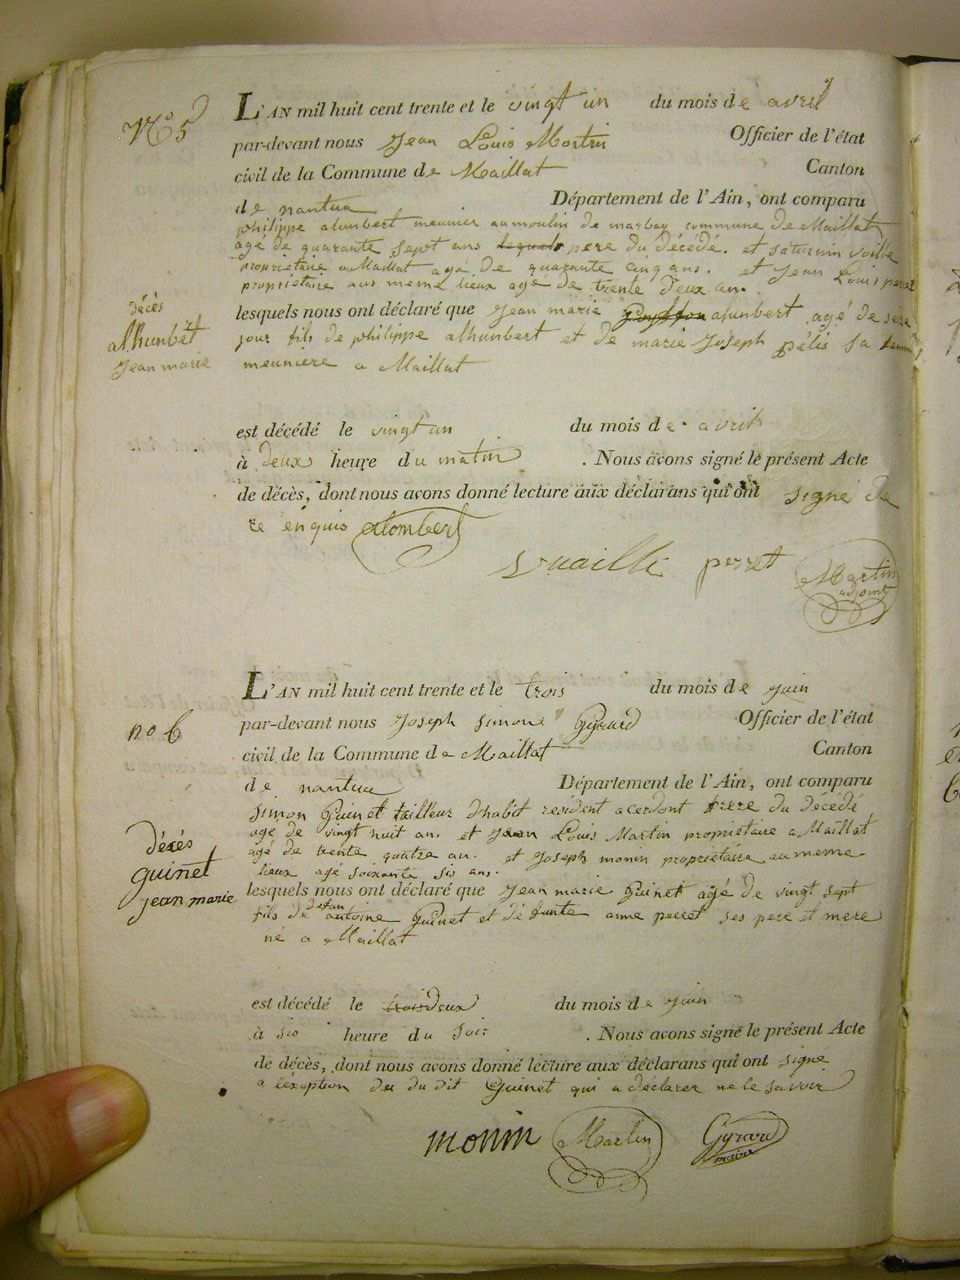 N.o 5
L'AN mil huit cent trente et le vingt un du mois de avril
par-devant nous Jean Louis Martin Officier de l'état
civil de la Commune de Maillat Canton
de nantua Département de l'Ain, ont comparu
philippe alunbert meunier au moulin de marbay commune de Maillat
agé de quarante sept ans lequels pere du décédé. et saturnin voille
propriétaire a Maillat agé de quarante cinq ans. et Jean Louis perret
propriétaire aus meme lieux agé de trente deux an.
lesquels nous ont déclaré que Jean marie alunbert agé de
jour fils de philippe alhunbert et de marie Joseph pélis sa
meuniere a Maillat
décés
alhunbét
Jean marie
est décédé le vingt un du mois de avril
à deux heure du matin . Nous avons signé le présent Acte
de décès, dont nous avons donné lecture aux déclarans qui ont signé de
ce enquis alombert
Vuaille perret Martin
adjoint
no 6
L'AN mil huit cent trente et le trois du mois de juin
par-devant nous Joseph Simone Gyrard Officier de l'état
civil de la Commune de Maillat Canton
de nantua Département de l'Ain, ont comparu
Simon Guinet tailleur d'habit resident a cerdont frere du décédé
agé de vingt huit ans et Jean Louis Martin propriétaire a Maillat
agé de trente quatre an. et Joseph monin propriétaire au meme
lieux agé soixante sis ans.
lesquels nous ont déclaré que Jean marie Guinet agé de vingt sept
fils de defun antoine Guinet et dé funte anne perret ses pere et mere
né a Maillat
décés
guinet
jean marie
est décédé le trois deux du mois de juin
à sis heure du soir . Nous avons signé le présent Acte
de décès, dont nous avons donné lecture aux déclarans qui ont signé
a l'exeption du du dit Guinet qui a déclarer ne le savoir
monin Martin Gyrard
maire